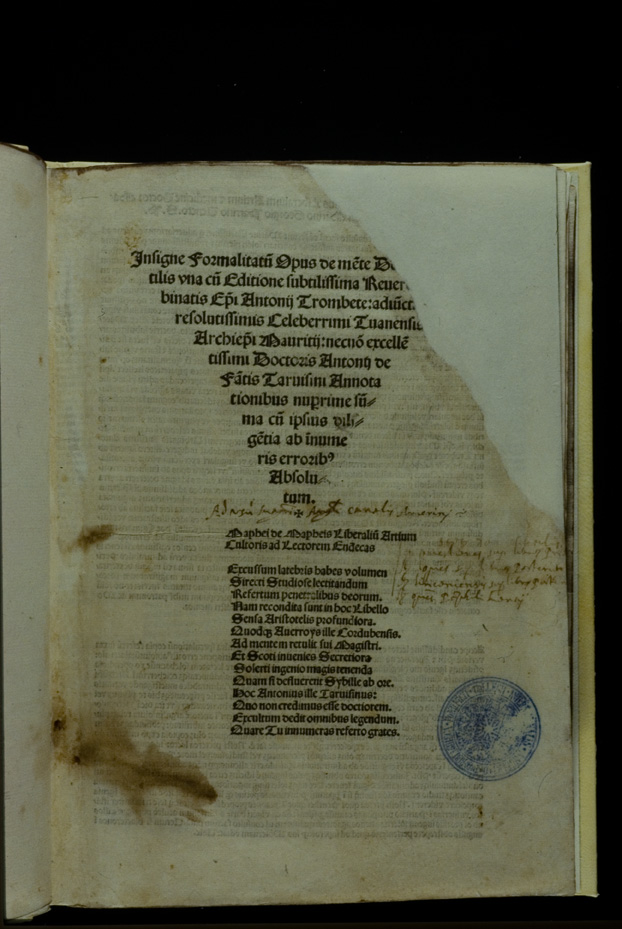 Insigne Formalitatū Opus de mēte D
tilis vna cū Editione subtilissima Reuer
binatis Ep̄i Antonij Trombete: adiūct
resolutissimis Celeberrimi Tuanensis
Archiep̄i Mauritij: necnō excellē
tissimi Doctoris Antonij de
Fātis Taruisini Annota
tionibus nuprime sū⸗
ma cū ipsius dili⸗
gētia ab īnume
ris erroribꝰ
Absolu
tum.
Maphei de Mapheis Liberaliū Artium
Cultoris ad Lectorem Endecas
Excussum latebris habes volumen
Sirecti Studiose lectitandum
Refertum penetralibus deorum.
Nam recondita sunt in hoc Libello
Sensa Aristotelis profundiora.
Quodqꝫ Auerroys ille Cordubensis.
Ad mentem retulit sui Magistri.
Et Scoti inuenies Secretiora
Solerti ingenio magis tenenda
Quam si defluerent Sybille ab ore.
Hoc Antonius ille Taruisinus:
Quo non credimus esse doctiorem.
Excultum dedit omnibus legendum.
Quare Tu innumeras referto grates.